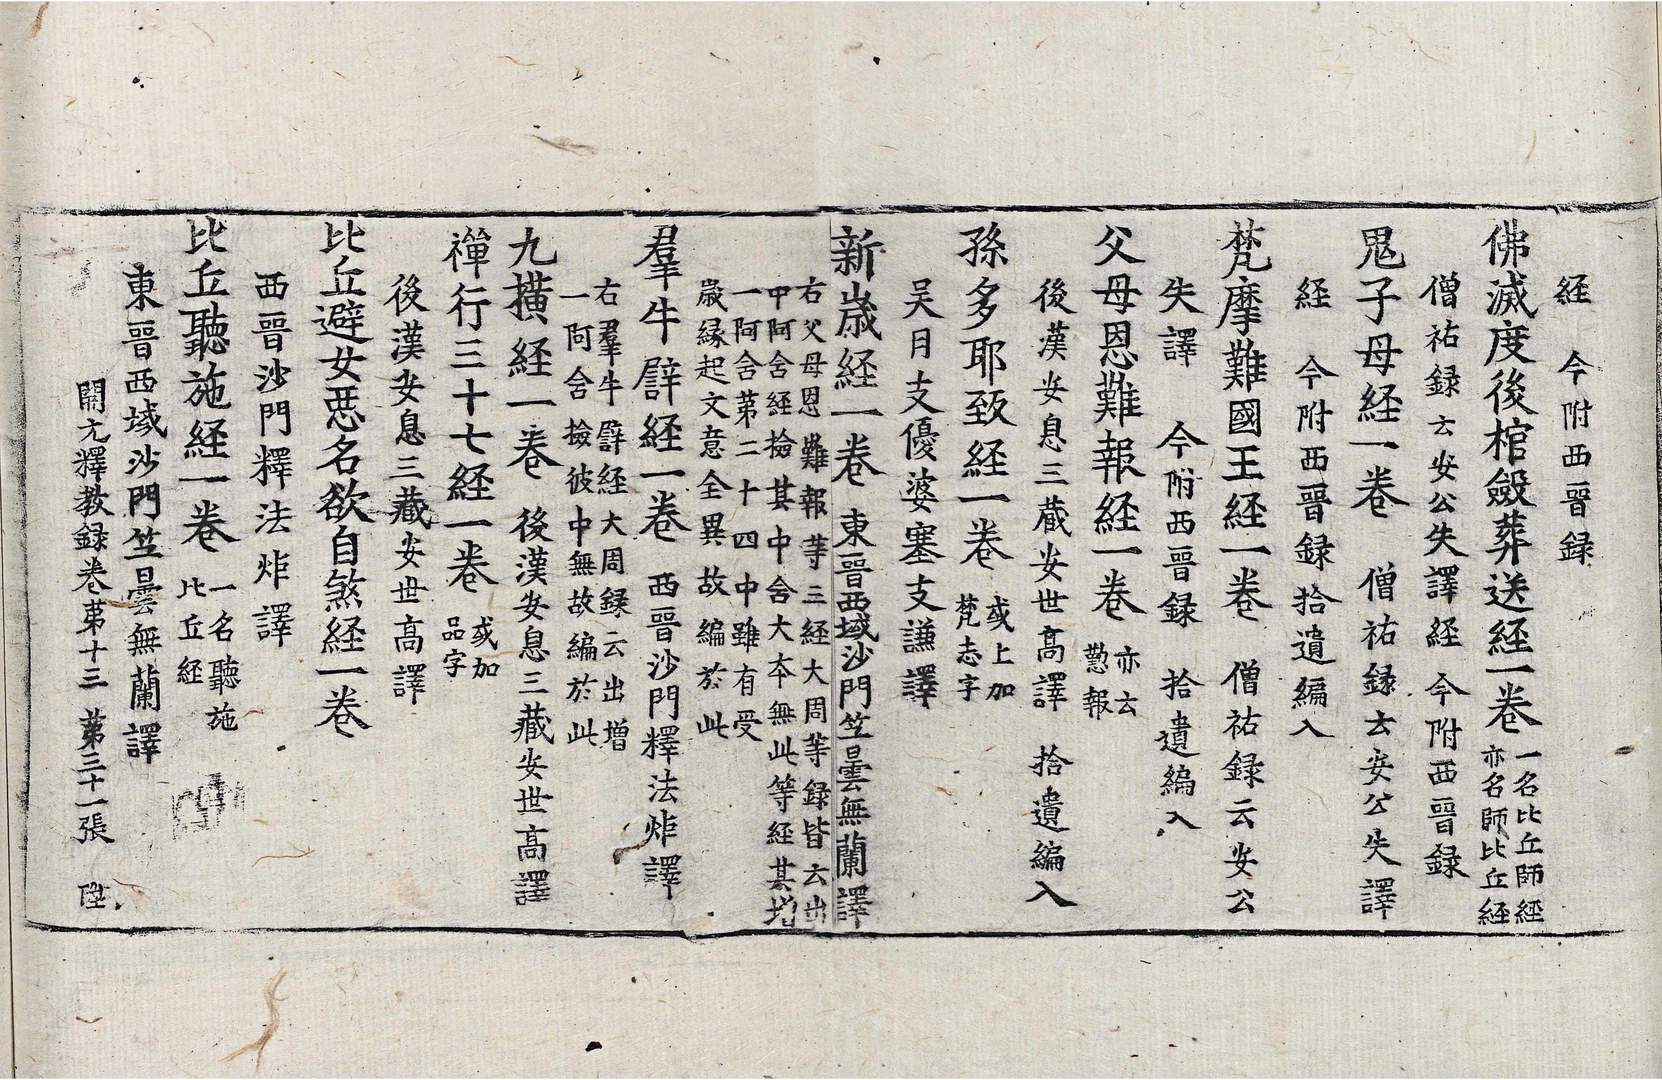 経　今附西晉録
佛滅度後棺斂葬送経一卷 一名比丘師経
亦名師比丘経
僧祐録云安公失譯経今附西晉録
鬼子母経一卷　僧祐録云安公失譯
経　今附西晉録拾遺編入
梵摩難國王経一卷　僧祐録云安公
失譯　今附西晉録　拾遺編入
父母恩難報経一卷 亦云
懃報
後漢安息三藏安世髙譯　拾遺編入
孫多耶致経一卷 或上加
梵志字
吴月支優婆塞支謙譯
新歳経一卷　東晉西域沙門竺曇無蘭譯
右父母恩難報等三経大周等録皆云出
中阿含経撿其中含大本無此等経其增
一阿含第二十四中雖有受
歳縁起文意全異故編於此
羣牛譬経一卷　西晉沙門釋法炬譯
右羣牛譬経大周録云出增
一阿含撿彼中無故編於此
九横経一卷　後漢安息三藏安世髙譯
禪行三十七経一卷 或加
品字
後漢安息三藏安世髙譯
比丘避女惡名欲自煞経一卷
西晉沙門釋法炬譯
比丘聽施経一卷 一名聽施
比丘経
東晉西域沙門竺曇無蘭譯
開元釋教録卷苐十三　第三十一張　陞